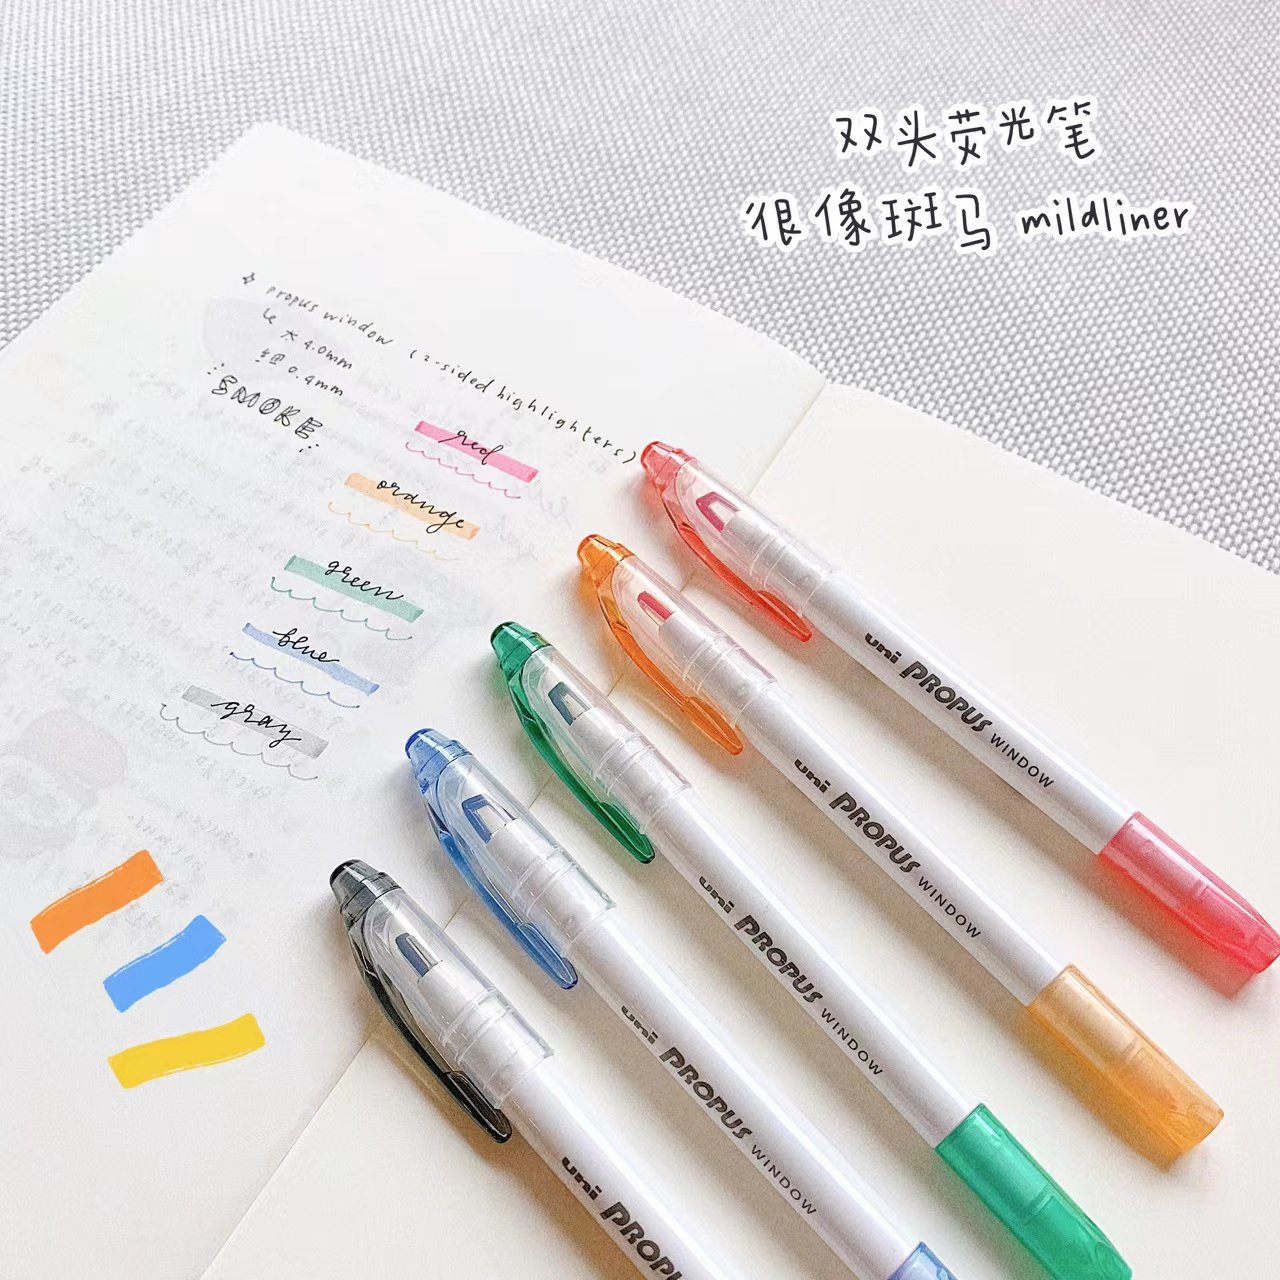 双头荧光笔
很像斑马 mildliner
propus window (2-sided highlighters)
大 4.0mm
细 0.4mm
SMOKE
red
orange
green
blue
gray
uni PROPUS WINDOW
uni PROPUS WINDOW
uni PROPUS WINDOW
uni PROPUS WINDOW
uni PROPU